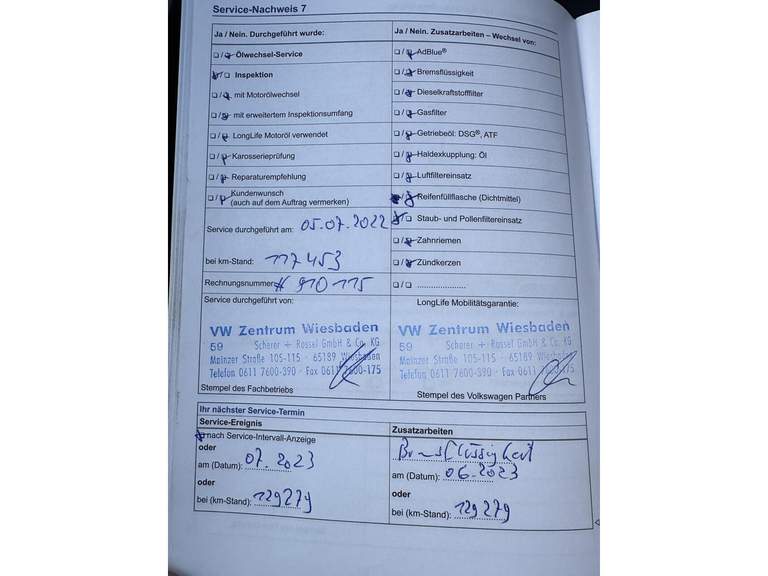 Service-Nachweis 7
Ja / Nein. Durchgeführt wurde:
Ölwechsel-Service
Inspektion
mit Motorölwechsel
mit erweitertem Inspektionsumfang
LongLife Motoröl verwendet
Karosserieprüfung
Reparaturempfehlung
Kundenwunsch
(auch auf dem Auftrag vermerken)
Service durchgeführt am: 05.07.2022
bei km-Stand: 117453
Rechnungsnummer: # 910 115
Service durchgeführt von:
VW Zentrum Wiesbaden
59 Scherer + Rossel GmbH & Co. KG
Mainzer Straße 105-115 · 65189 Wiesbaden
Telefon 0611 7600-390 · Fax 0611 7600-175
Stempel des Fachbetriebs
Ja / Nein. Zusatzarbeiten – Wechsel von:
AdBlue®
Bremsflüssigkeit
Dieselkraftstofffilter
Gasfilter
Getriebeöl: DSG®, ATF
Haldexkupplung: Öl
Luftfiltereinsatz
Reifenfüllflasche (Dichtmittel)
Staub- und Pollenfiltereinsatz
Zahnriemen
Zündkerzen
....................
LongLife Mobilitätsgarantie:
VW Zentrum Wiesbaden
59 Scherer + Rossel GmbH & Co. KG
Mainzer Straße 105-115 · 65189 Wiesbaden
Telefon 0611 7600-390 · Fax 0611 7600-175
Stempel des Volkswagen Partners
Ihr nächster Service-Termin
Service-Ereignis
nach Service-Intervall-Anzeige
oder
am (Datum): 07.2023
oder
bei (km-Stand): 129279
Zusatzarbeiten
Bremsflüssigkeit
am (Datum): 06.2023
oder
bei (km-Stand): 129279